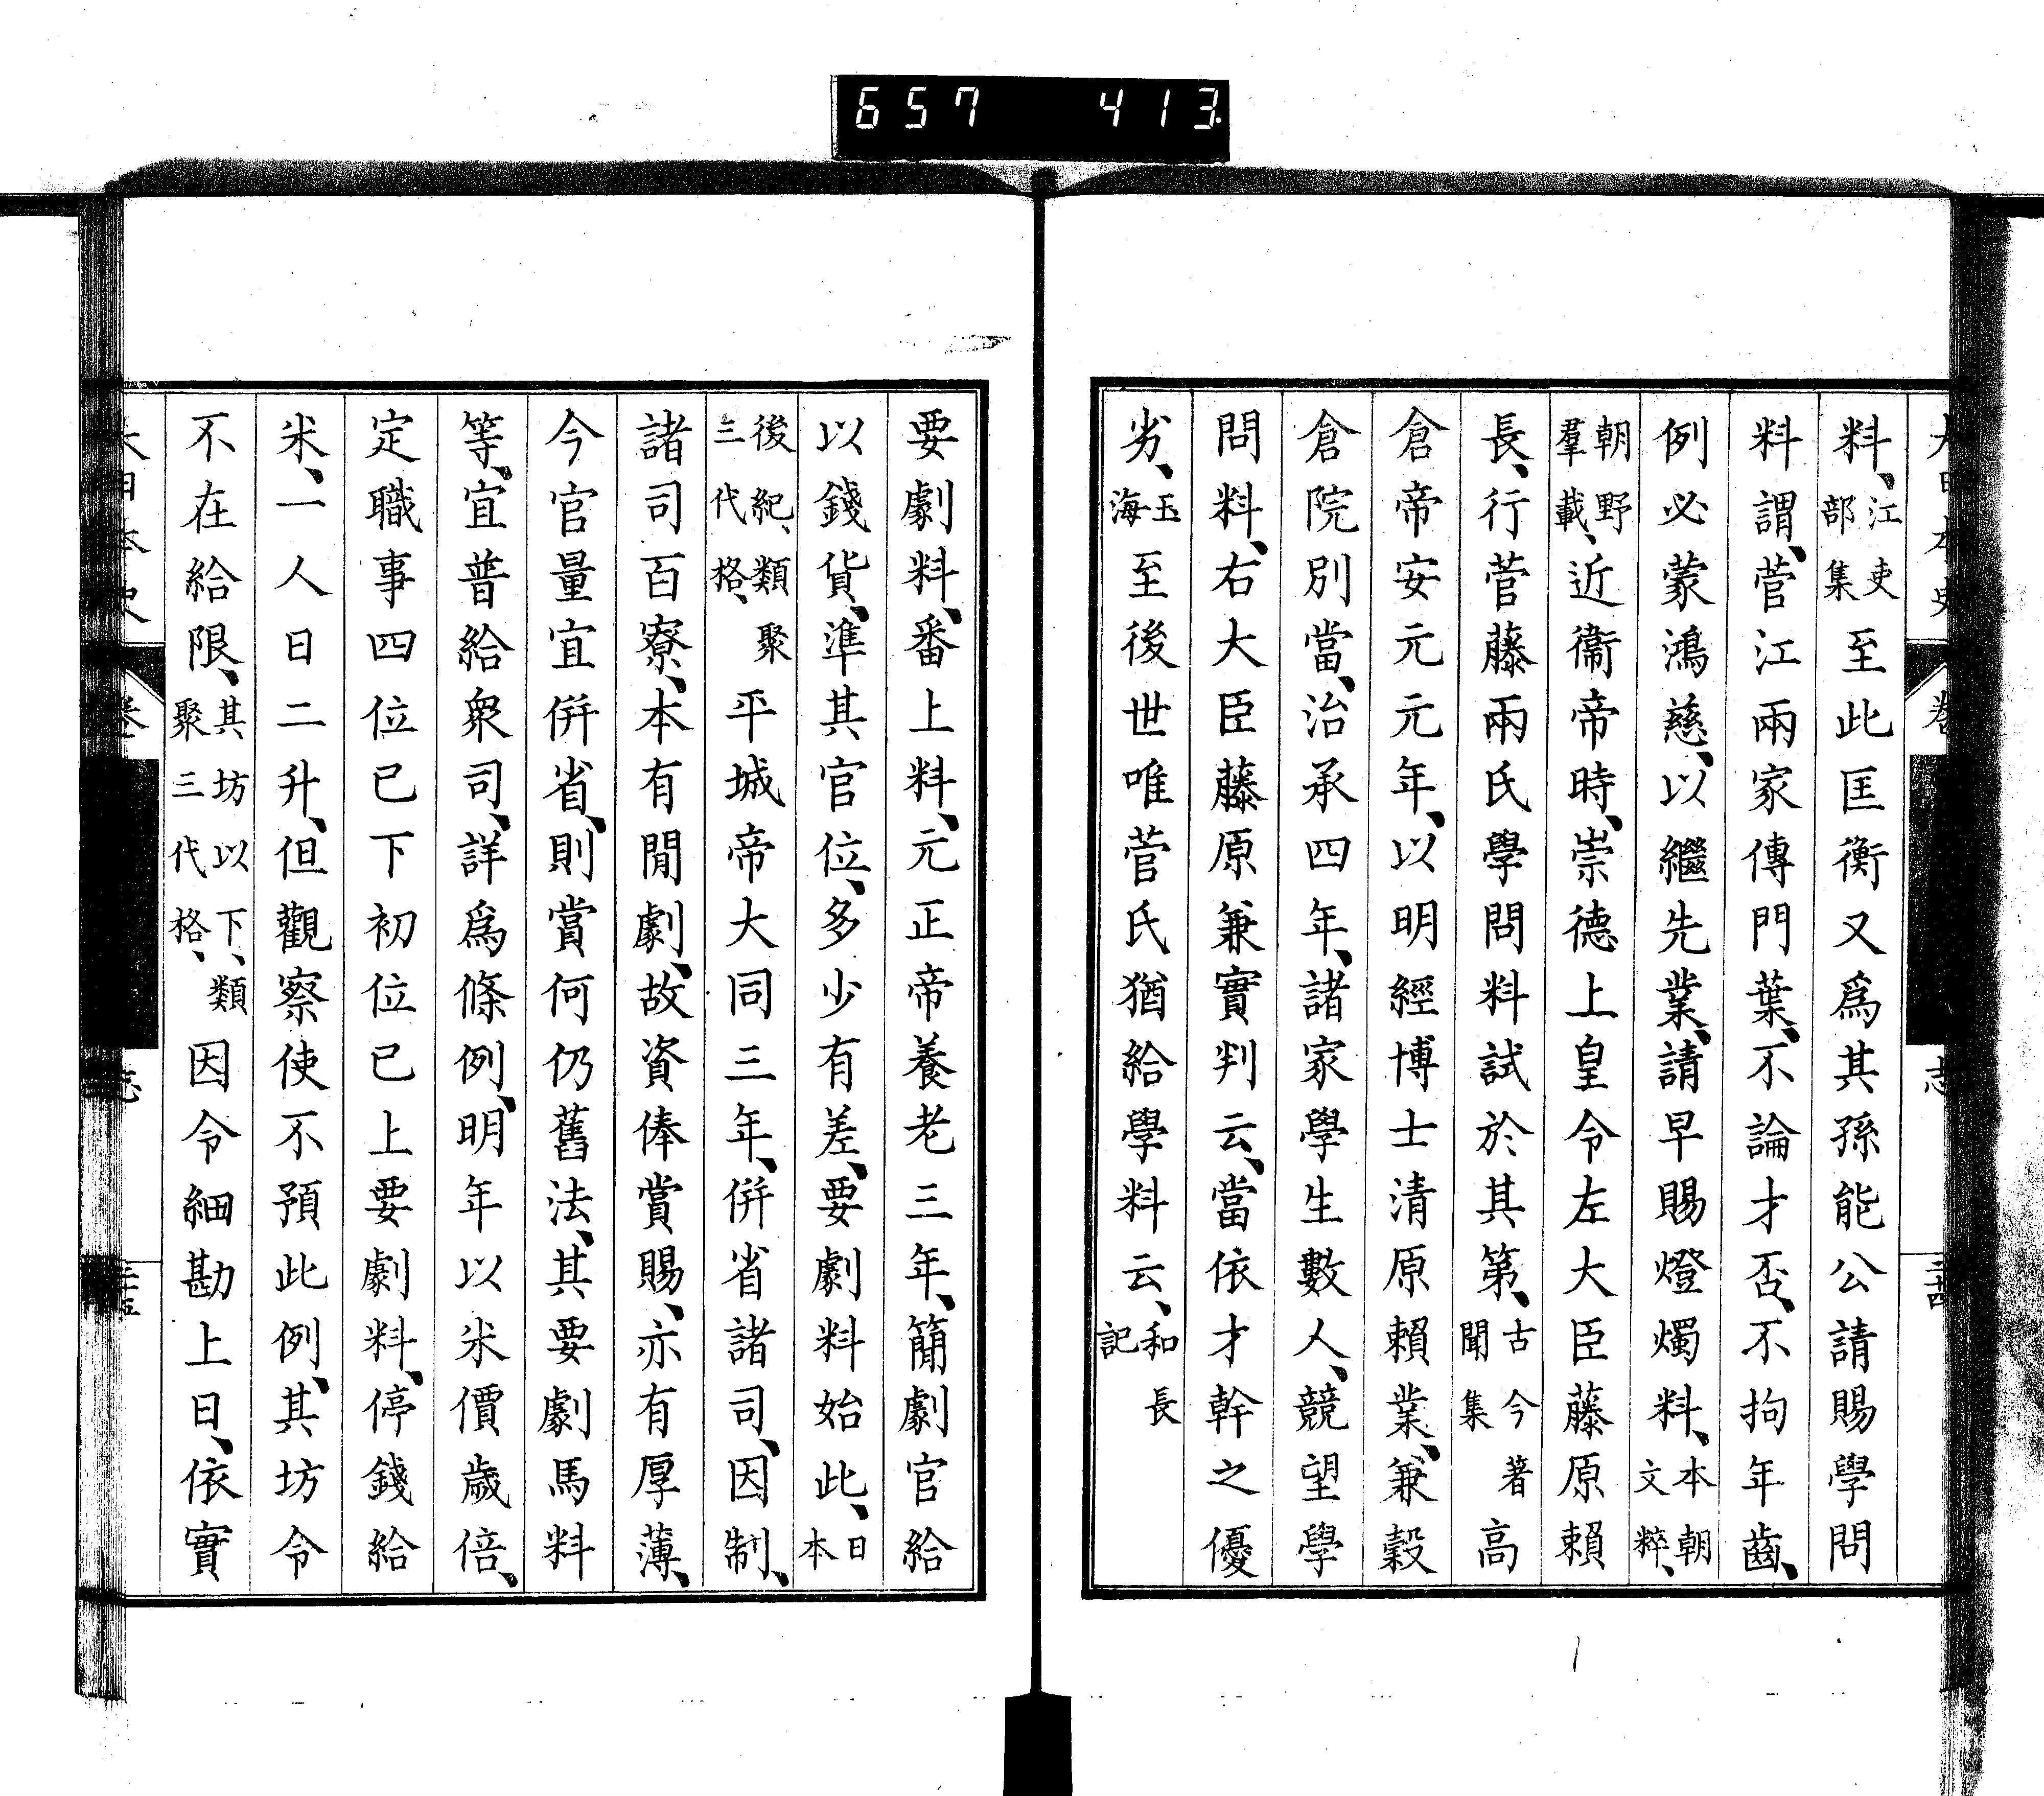 657 413
大日本史 卷 志 二十四
料、江吏部集至此匡衡又爲其孫能公請賜學問
料謂、菅江兩家傳門葉、不論才否、不拘年齒、
例必蒙鴻慈、以繼先業、請早賜燈燭料、本朝文粹、
朝野羣載、近衞帝時、崇德上皇令左大臣藤原賴
長、行菅藤兩氏學問料試於其第、古今著聞集高
倉帝安元元年、以明經博士清原賴業、兼穀
倉院別當、治承四年、諸家學生數人、競望學
問料、右大臣藤原兼實判云、當依才幹之優
劣、玉海至後世唯菅氏猶給學料云、和長記
要劇料、番上料、元正帝養老三年、簡劇官給
以錢貨、準其官位、多少有差、要劇料始此、日本
後紀、類聚三代格、平城帝大同三年、併省諸司、因制、
諸司百寮、本有閒劇、故資俸賞賜、亦有厚薄、
今官量宜併省、則賞何仍舊法、其要劇馬料
等、宜普給衆司、詳爲條例、明年以米價歲倍、
定職事四位已下初位已上要劇料、停錢給
米、一人日二升、但觀察使不預此例、其坊令
不在給限、其坊以下、類聚三代格、因令細勘上日、依實
大日本史 卷 志 二十五